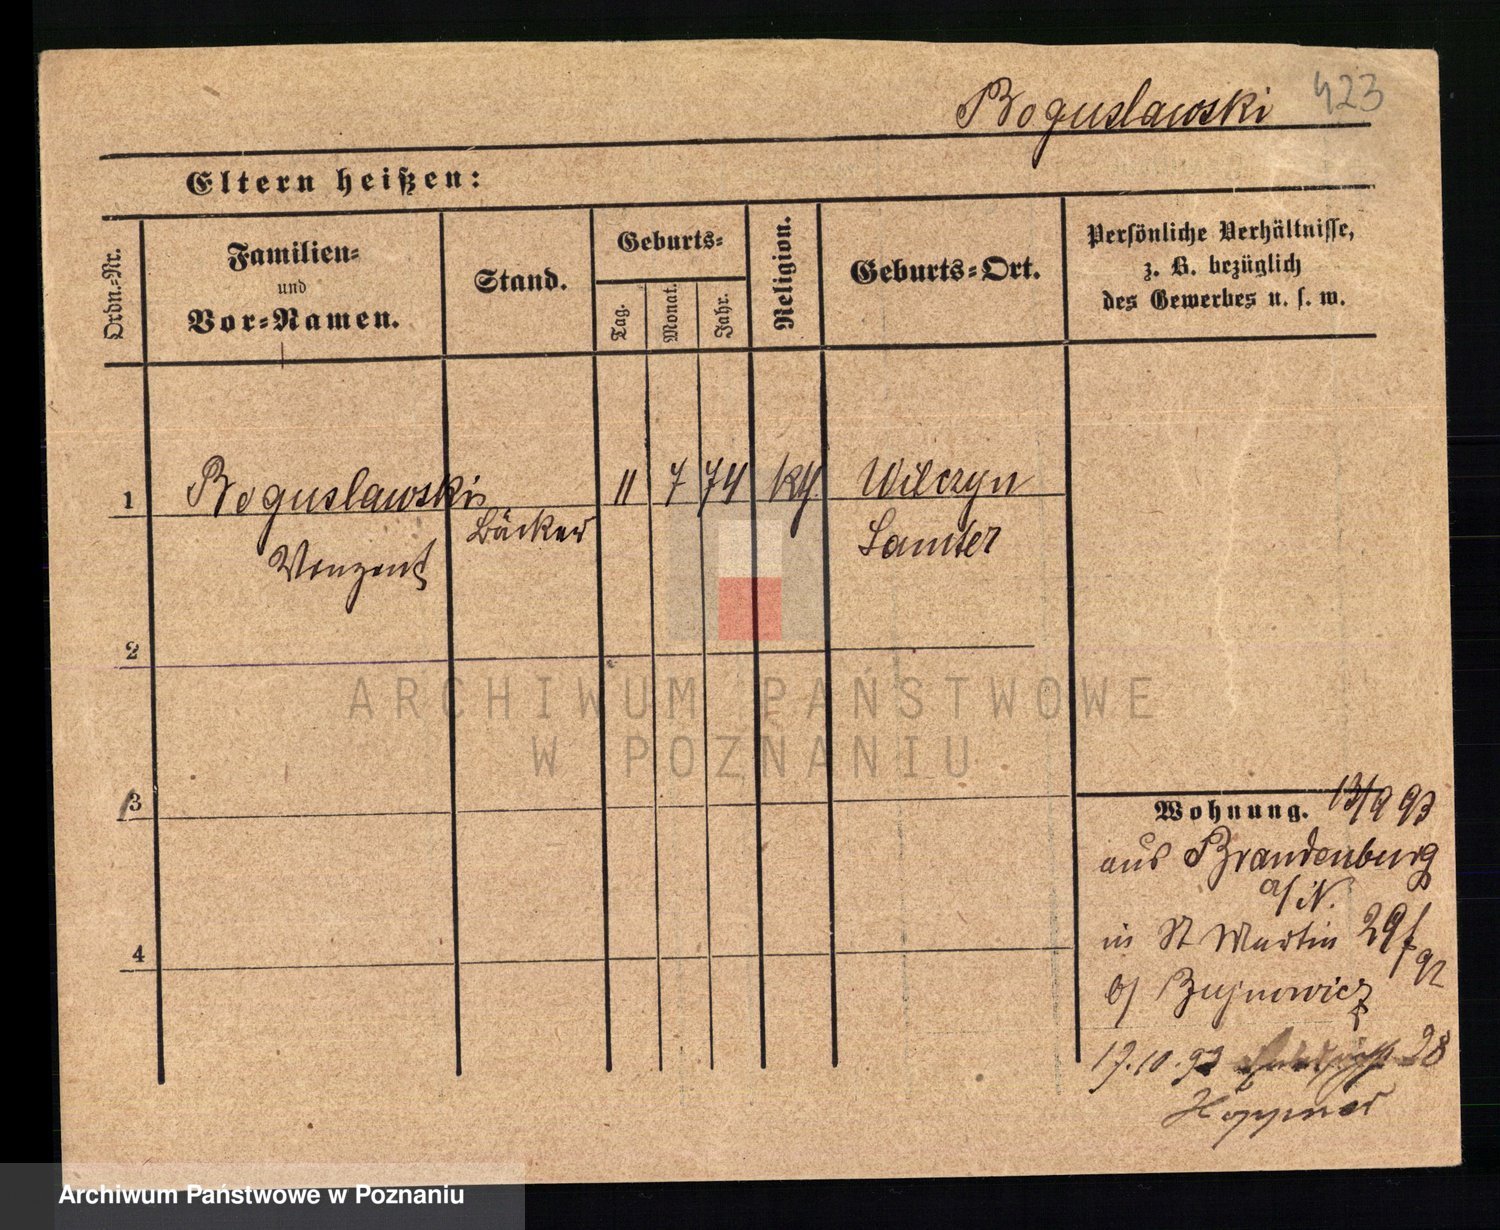 Boguslawski 423
Eltern heißen:
Ordn.-Nr.
Familien-
und
Vor-Namen.
Stand.
Geburts-
Tag.
Monat.
Jahr.
Religion.
Geburts-Ort.
Persönliche Verhältnisse,
z. B. bezüglich
des Gewerbes u. s. w.
1 Boguslawski 11 7 74 kth Wilczyn
Bäcker
Venzent Samter
2
ARCHIWUM PAŃSTWOWE
W POZNANIU
3
Wohnung. 13/9 93
aus Brandenburg
a/
in St Martin 29
b/ Bujnowicz
17.10.93 28
Höppner
4
Archiwum Państwowe w Poznaniu